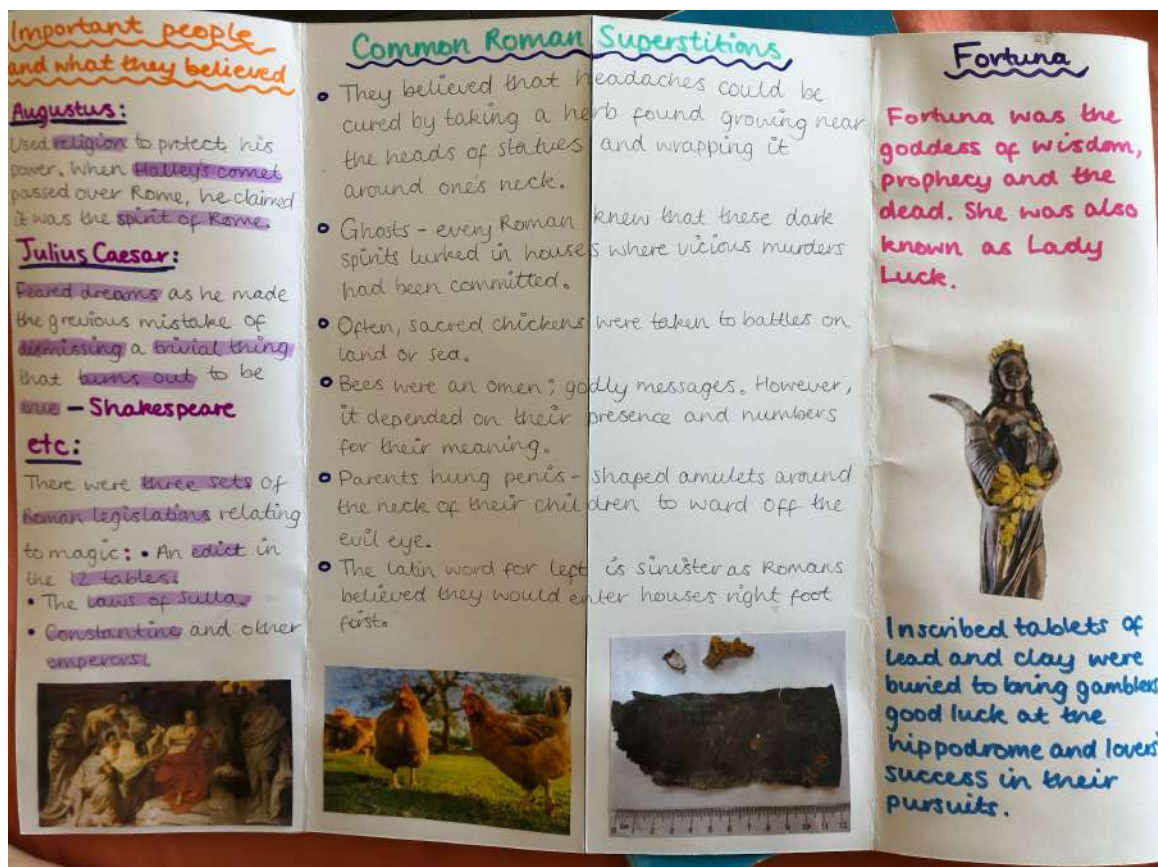 Important people
and what they believed
Augustus:
Used religion to protect his
power. When Halley's comet
passed over Rome, he claimed
it was the spirit of Rome.
Julius Caesar:
Feared dreams as he made
the grevious mistake of
dismissing a trivial thing
that turns out to be
true – Shakespeare
etc:
There were three sets of
Roman legislations relating
to magic: • An edict in
the 12 tables.
• The Laws of Sulla.
• Constantine and other
emperors.
Common Roman Superstitions
• They believed that headaches could be
cured by taking a herb found growing near
the heads of statues and wrapping it
around one's neck.
• Ghosts – every Roman knew that these dark
spirits lurked in houses where vicious murders
had been committed.
• Often, sacred chickens were taken to battles on
land or sea.
• Bees were an omen; godly messages. However,
it depended on their presence and numbers
for their meaning.
• Parents hung penis-shaped amulets around
the neck of their children to ward off the
evil eye.
• The latin word for left is sinister as Romans
believed they would enter houses right foot
first.
0 1 2 3 4 5 6 7 8 9 10 11 12
Fortuna
Fortuna was the
goddess of wisdom,
prophecy and the
dead. She was also
known as Lady
Luck.
Inscribed tablets of
lead and clay were
buried to bring gamblers
good luck at the
hippodrome and lovers'
success in their
pursuits.